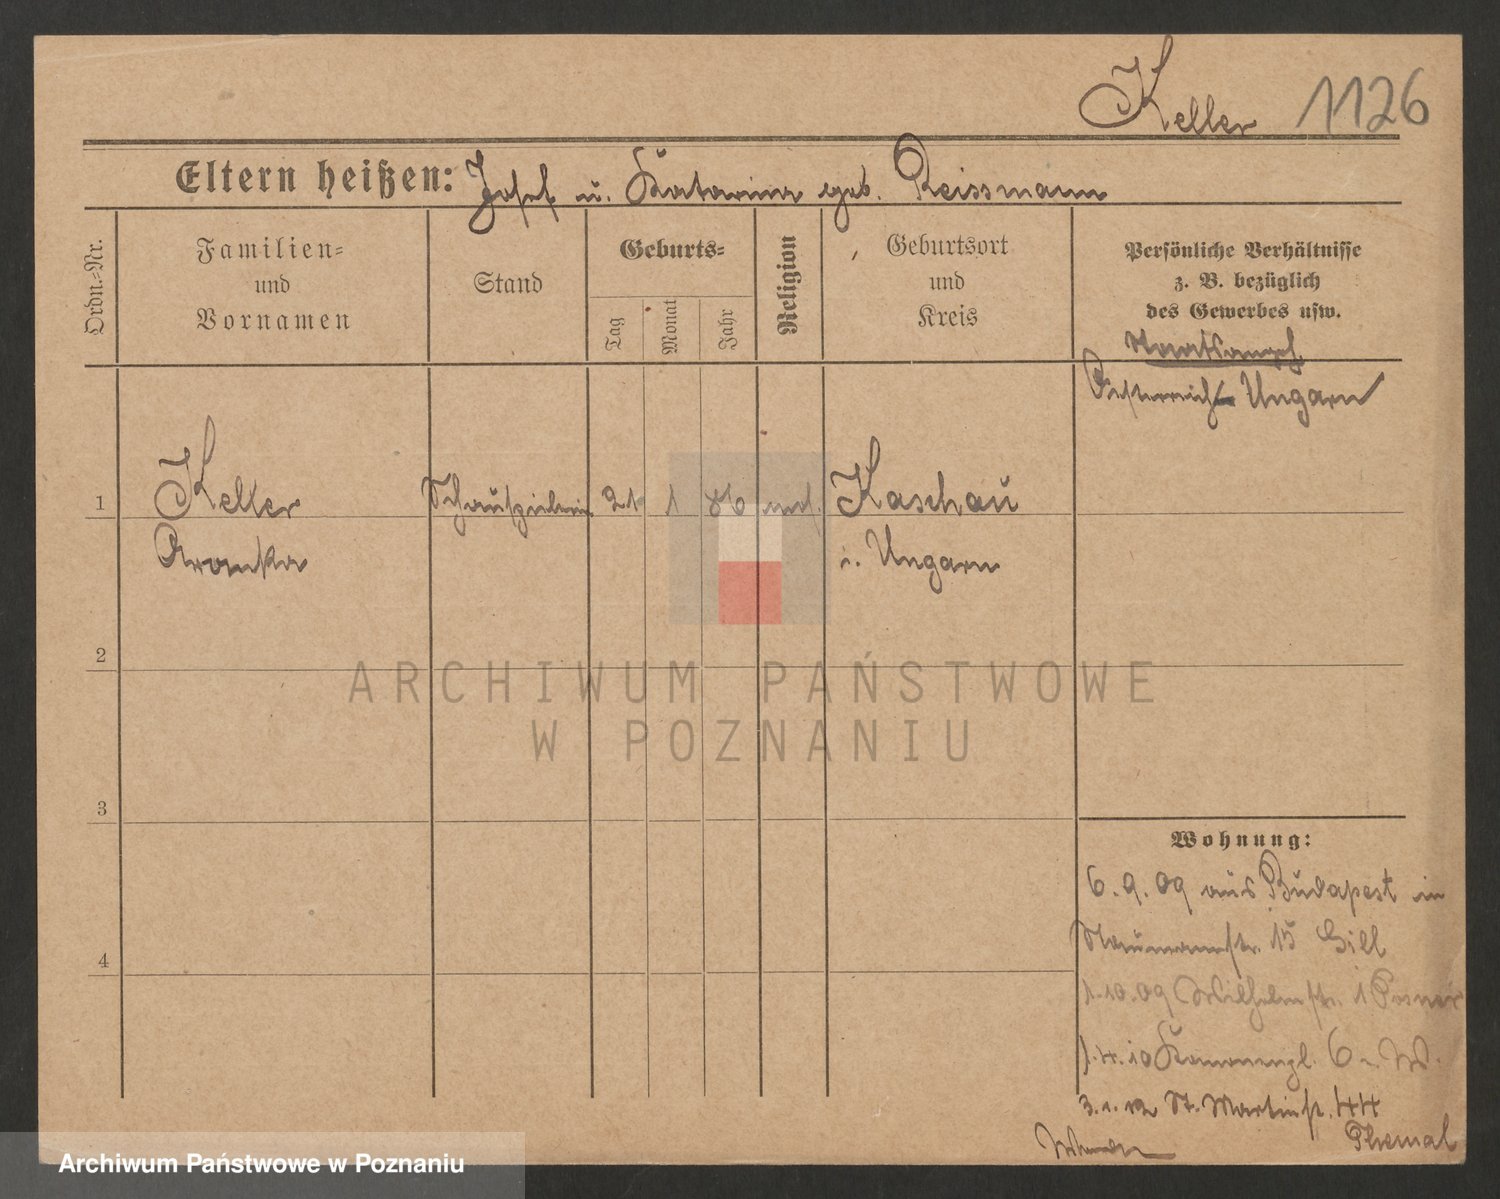 Keller 1126
Eltern heißen: Josef u. Katarina geb. Reissmann
Ordn.-Nr.
Familien-
und
Vornamen
Stand
Geburts-
Tag
Monat
Jahr
Religion
Geburtsort
und
Kreis
Persönliche Verhältnisse
z. B. bezüglich
des Gewerbes usw.
Staatsangeh
Österreich Ungarn
1 Keller Schauspielerin 21 1 86 Kaschau
Aranka i. Ungarn
2
3
4
Wohnung:
6.9.09 aus Budapest in
Naumannstr. 15 Gill
1.10.09 Wilhelmstr. 1 Posner
1.4.10 Kanonenpl. 6
3.1.12 St. Martinstr. 44
ARCHIWUM PAŃSTWOWE
W POZNANIU
Archiwum Państwowe w Poznaniu